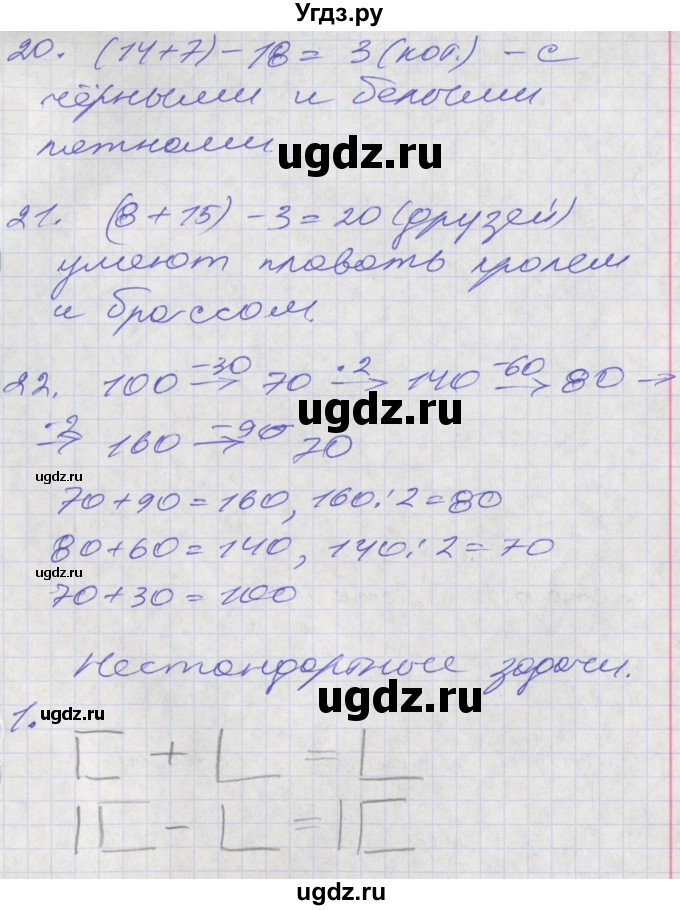 Угдз.ру
20. (14+7)-18= 3 (кот.) - с
чёрными и белыми
пятнами.
ugdz.ru
21. (8+15)-3=20 (друзей)
умеют плавать кролем
и брассом.
ugdz.ru
22. 100 -30→ 70 ·2→ 140 -60→ 80 →
·2→ 160 -90→ 70
ugdz.ru
ugdz.ru
70+90=160, 160:2=80
80+60=140, 140:2=70
ugdz.ru
70+30=100
Нестандартные задачи.
ugdz.ru
1.
ugdz.ru
ugdz.ru
ugdz.ru